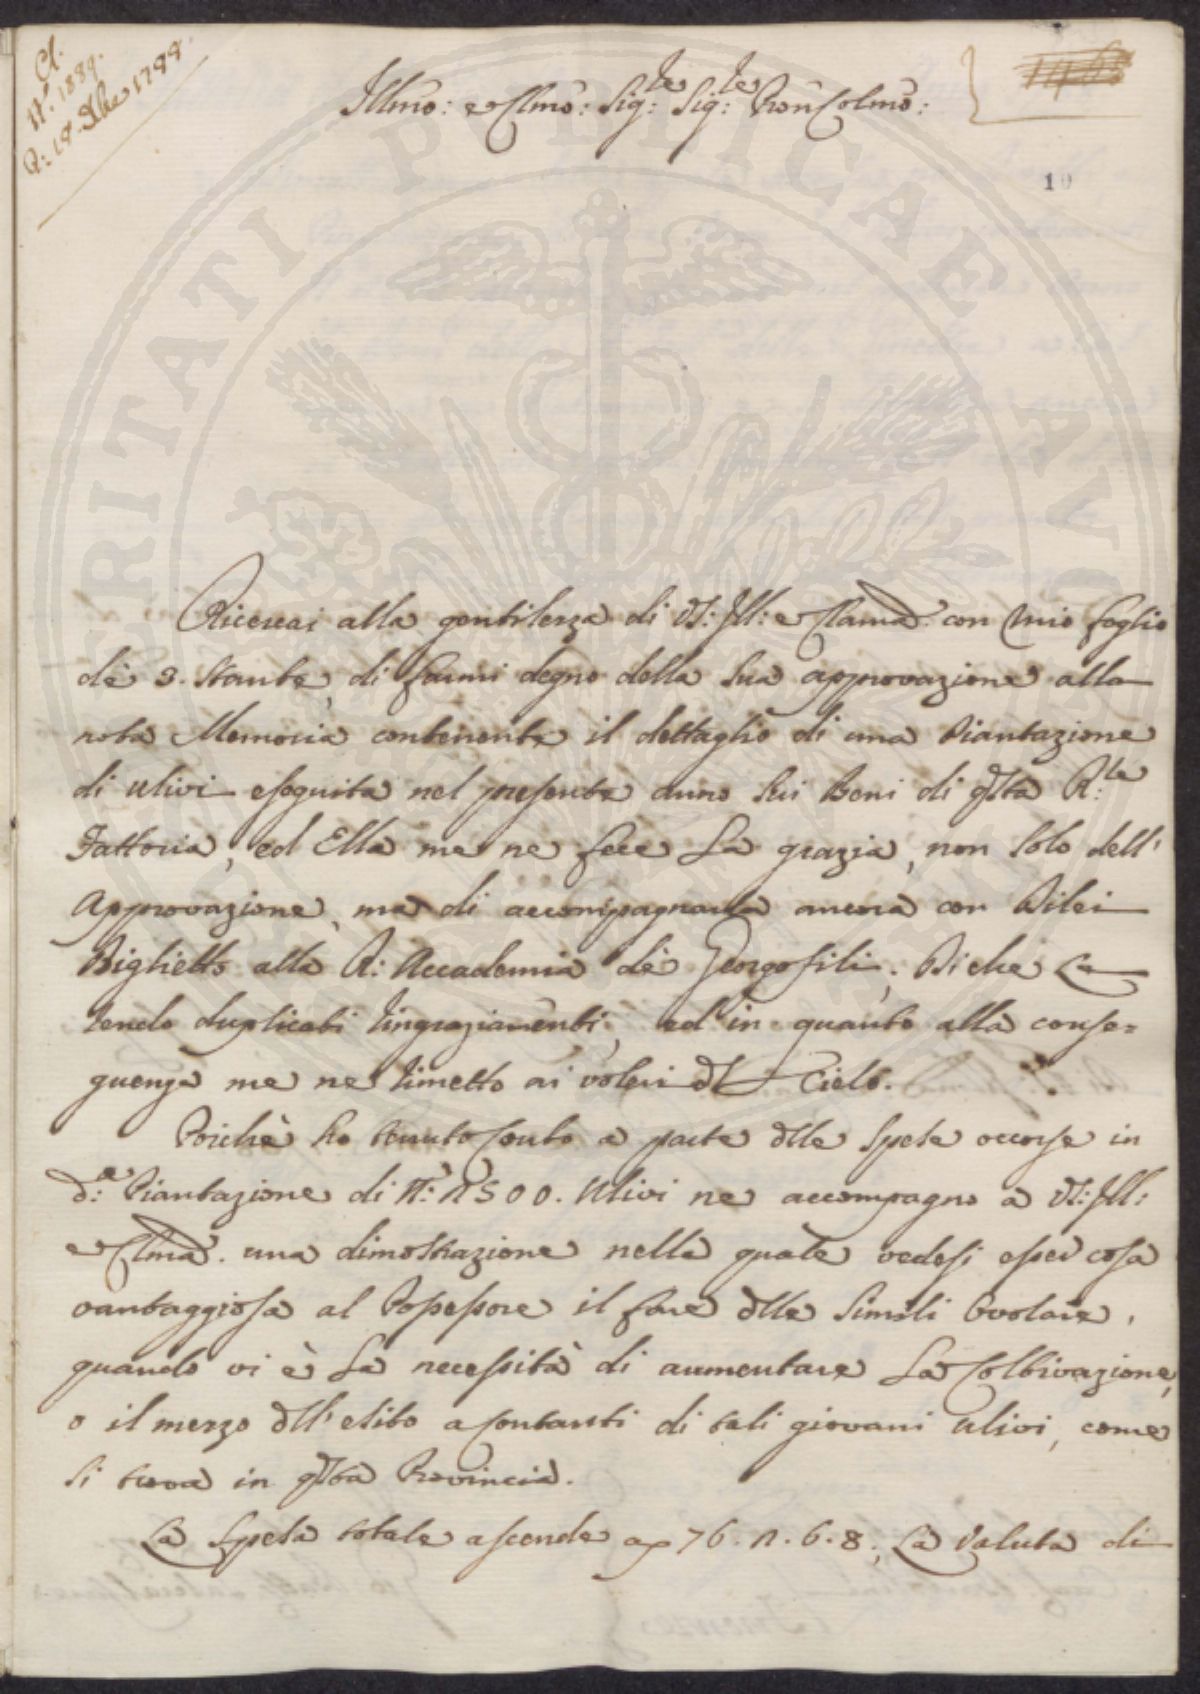 Cl.
N.° 1889.
A: 18. Xbre 1788.
1468
Illmo: e Clmo: Sig:re Sig:re Pron Colmo:
10
Ricercai alla gentilezza di VS: Ill: e Clama. con mio foglio
dè 3. stante, di farmi degno della sua approvazione alla
nota Memoria contenente il dettaglio di una Piantazione
di ulivi eseguita nel presente anno sui Beni di qsta R:le
Fattoria, ed Ella me ne fece la grazia, non solo dell'
Approvazione, ma di accompagnarla ancora con
Biglietto alla R: Accademia dè Georgofili, Di che Le
rendo duplicati ringraziamenti, ed in quanto alla conse=
guenza me ne rimetto ai voleri dl Cielo.
Poichè ho tenuto Conto a parte dlle spese occorse in
d:a Piantazione di N: 1500. Ulivi ne accompagno a VS: Ill:
e Clma. una dimostrazione nella quale vedesi esser cosa
vantaggiosa al Possessore il fare dlle simili Ovolaie,
quando vi è la necessità di aumentare la Coltivazione,
o il mezzo dll' esito a contanti di tali giovani ulivi, come
si trova in qsta Provincia.
La spesa totale ascende a 76. 1. 6. 8., La valuta di
VERITATI PUBLICAE